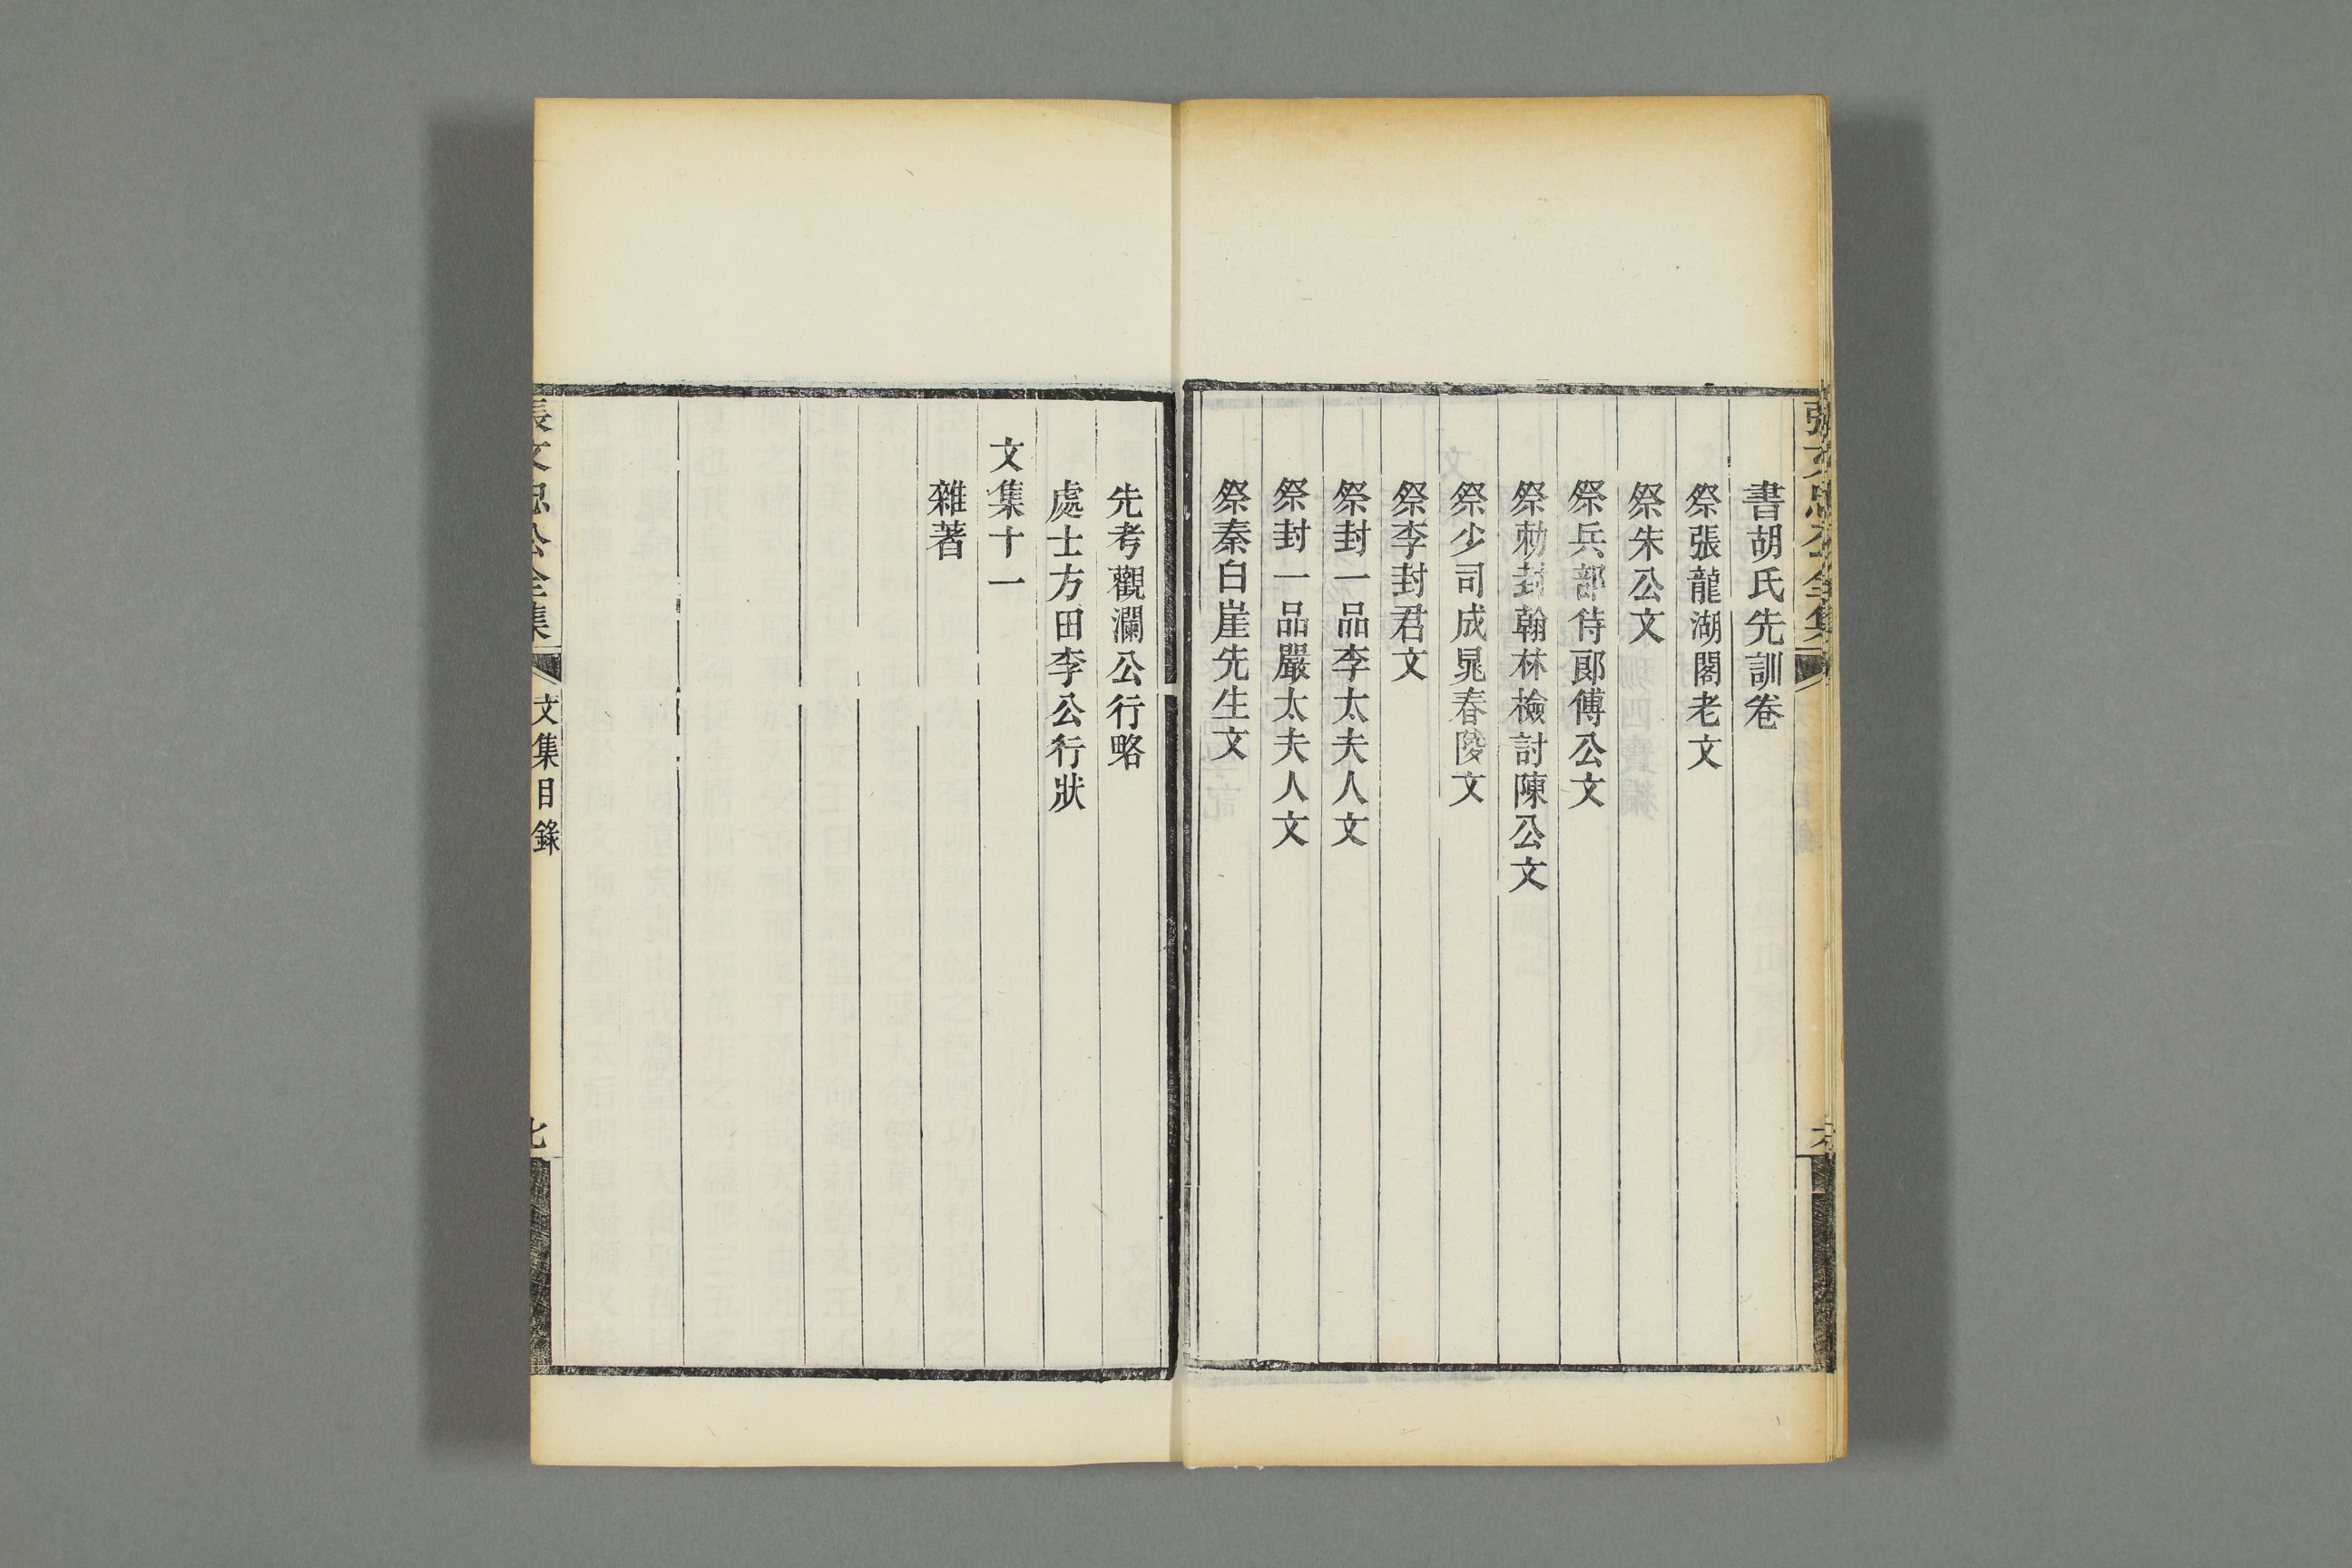 張文忠公全集
六
書胡氏先訓卷
祭張龍湖閣老文
祭朱公文
祭兵部侍郎傅公文
祭勑封翰林檢討陳公文
祭少司成晁春陵文
祭李封君文
祭封一品李太夫人文
祭封一品嚴太夫人文
祭秦白崖先生文
先考觀瀾公行略
處士方田李公行狀
文集十一
雜著
張文忠公全集
文集目錄
七